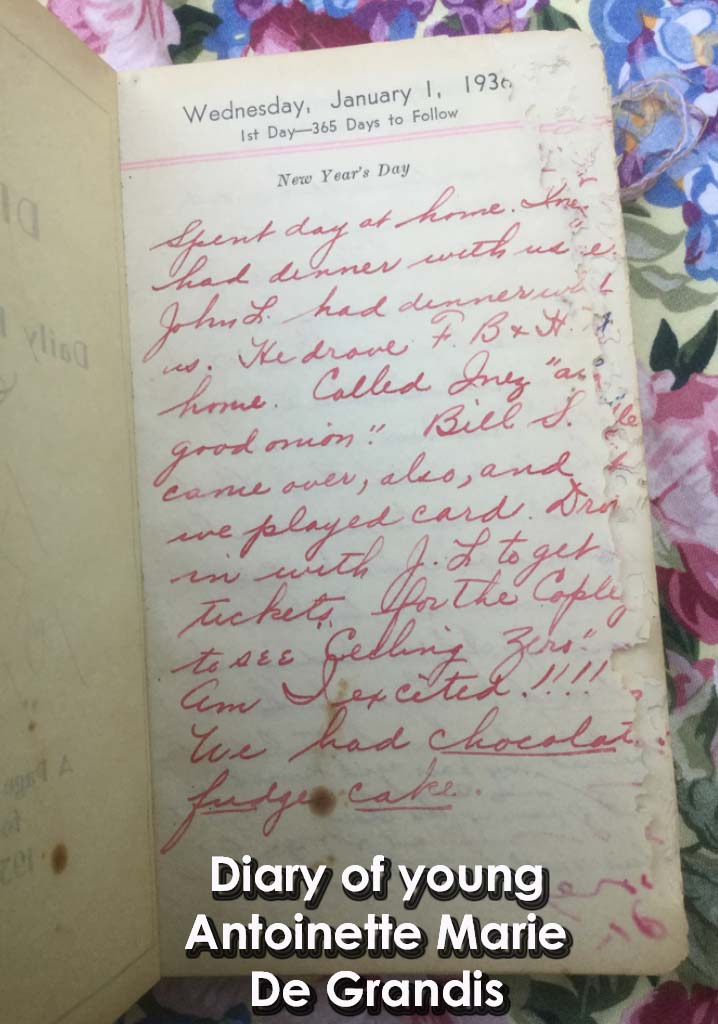 Wednesday, January 1, 1936
1st Day—365 Days to Follow
New Year's Day
Spent day at home.
had dinner with us
John L. had dinner
us. He drove F. B & H.
home. Called Inez "an
good onion". Bill S.
came over, also, and
we played card.
in with J. L to get
tickets for the Copley
to see "Ceiling Zero."
Am I excited!!!!
We had chocolat
fudge cake.
Diary of young
Antoinette Marie
De Grandis